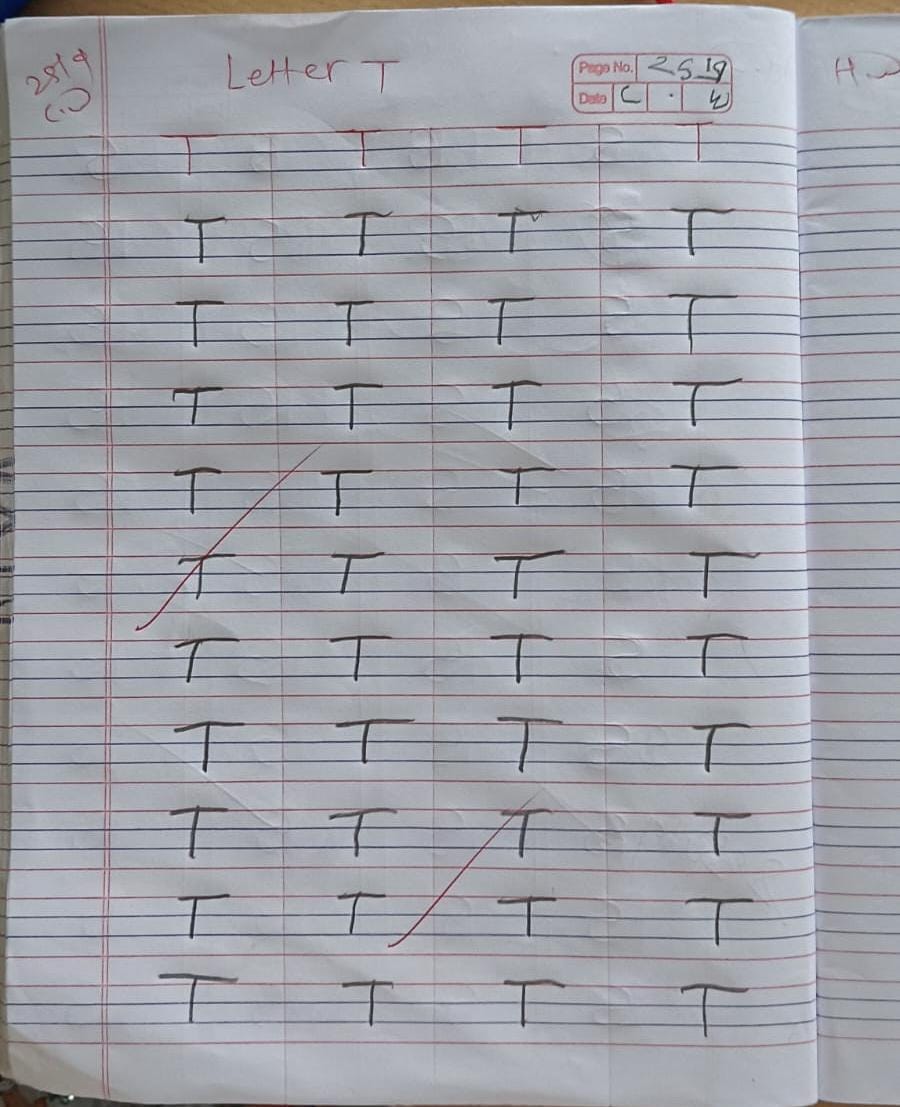 25/9
C.W
Letter T
Page No. 25/9
Date C . W
H.W
T T T T
T T T T
T T T T
T T T T
T T T T
T T T T
T T T T
T T T T
T T T T
T T T T
T T T T